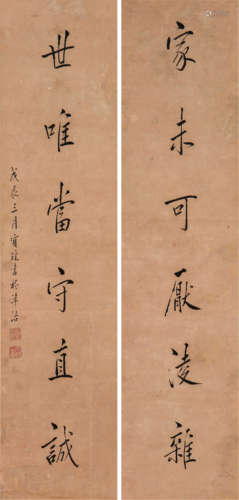 家未可厭淩雜
世唯當守直誠
戊辰三月寶琛書於津沽